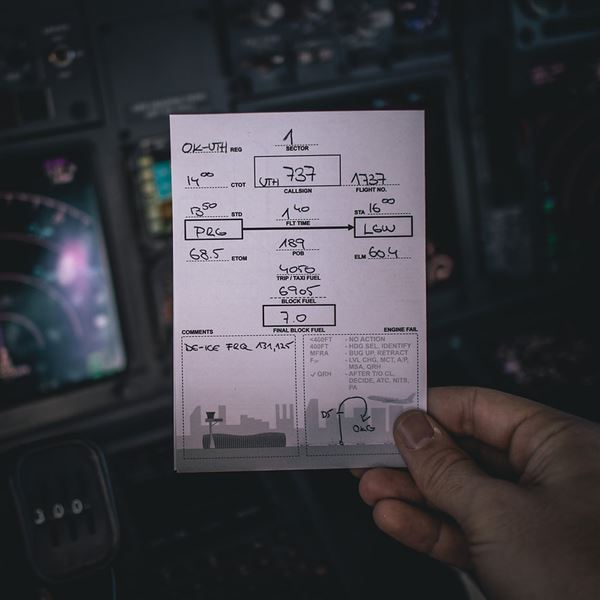 OK-UTH REG
1
SECTOR
14 00 CTOT
UTH 737
CALLSIGN
1737
FLIGHT NO.
13 50 STD
1 40
FLT TIME
STA 16 00
PRG
LGW
68.5 ETOM
189
POB
ELM
4050
TRIP / TAXI FUEL
6905
BLOCK FUEL
7.0
FINAL BLOCK FUEL
COMMENTS
DE-ICE FRQ 131,125
ENGINE FAIL
<400FT - NO ACTION
400FT - HDG SEL, IDENTIFY
MFRA - BUG UP, RETRACT
- LVL CHG, MCT, A/P,
MSA, QRH
✓ QRH - AFTER T/O CL,
DECIDE, ATC, NITS,
PA
D5
OKG
300